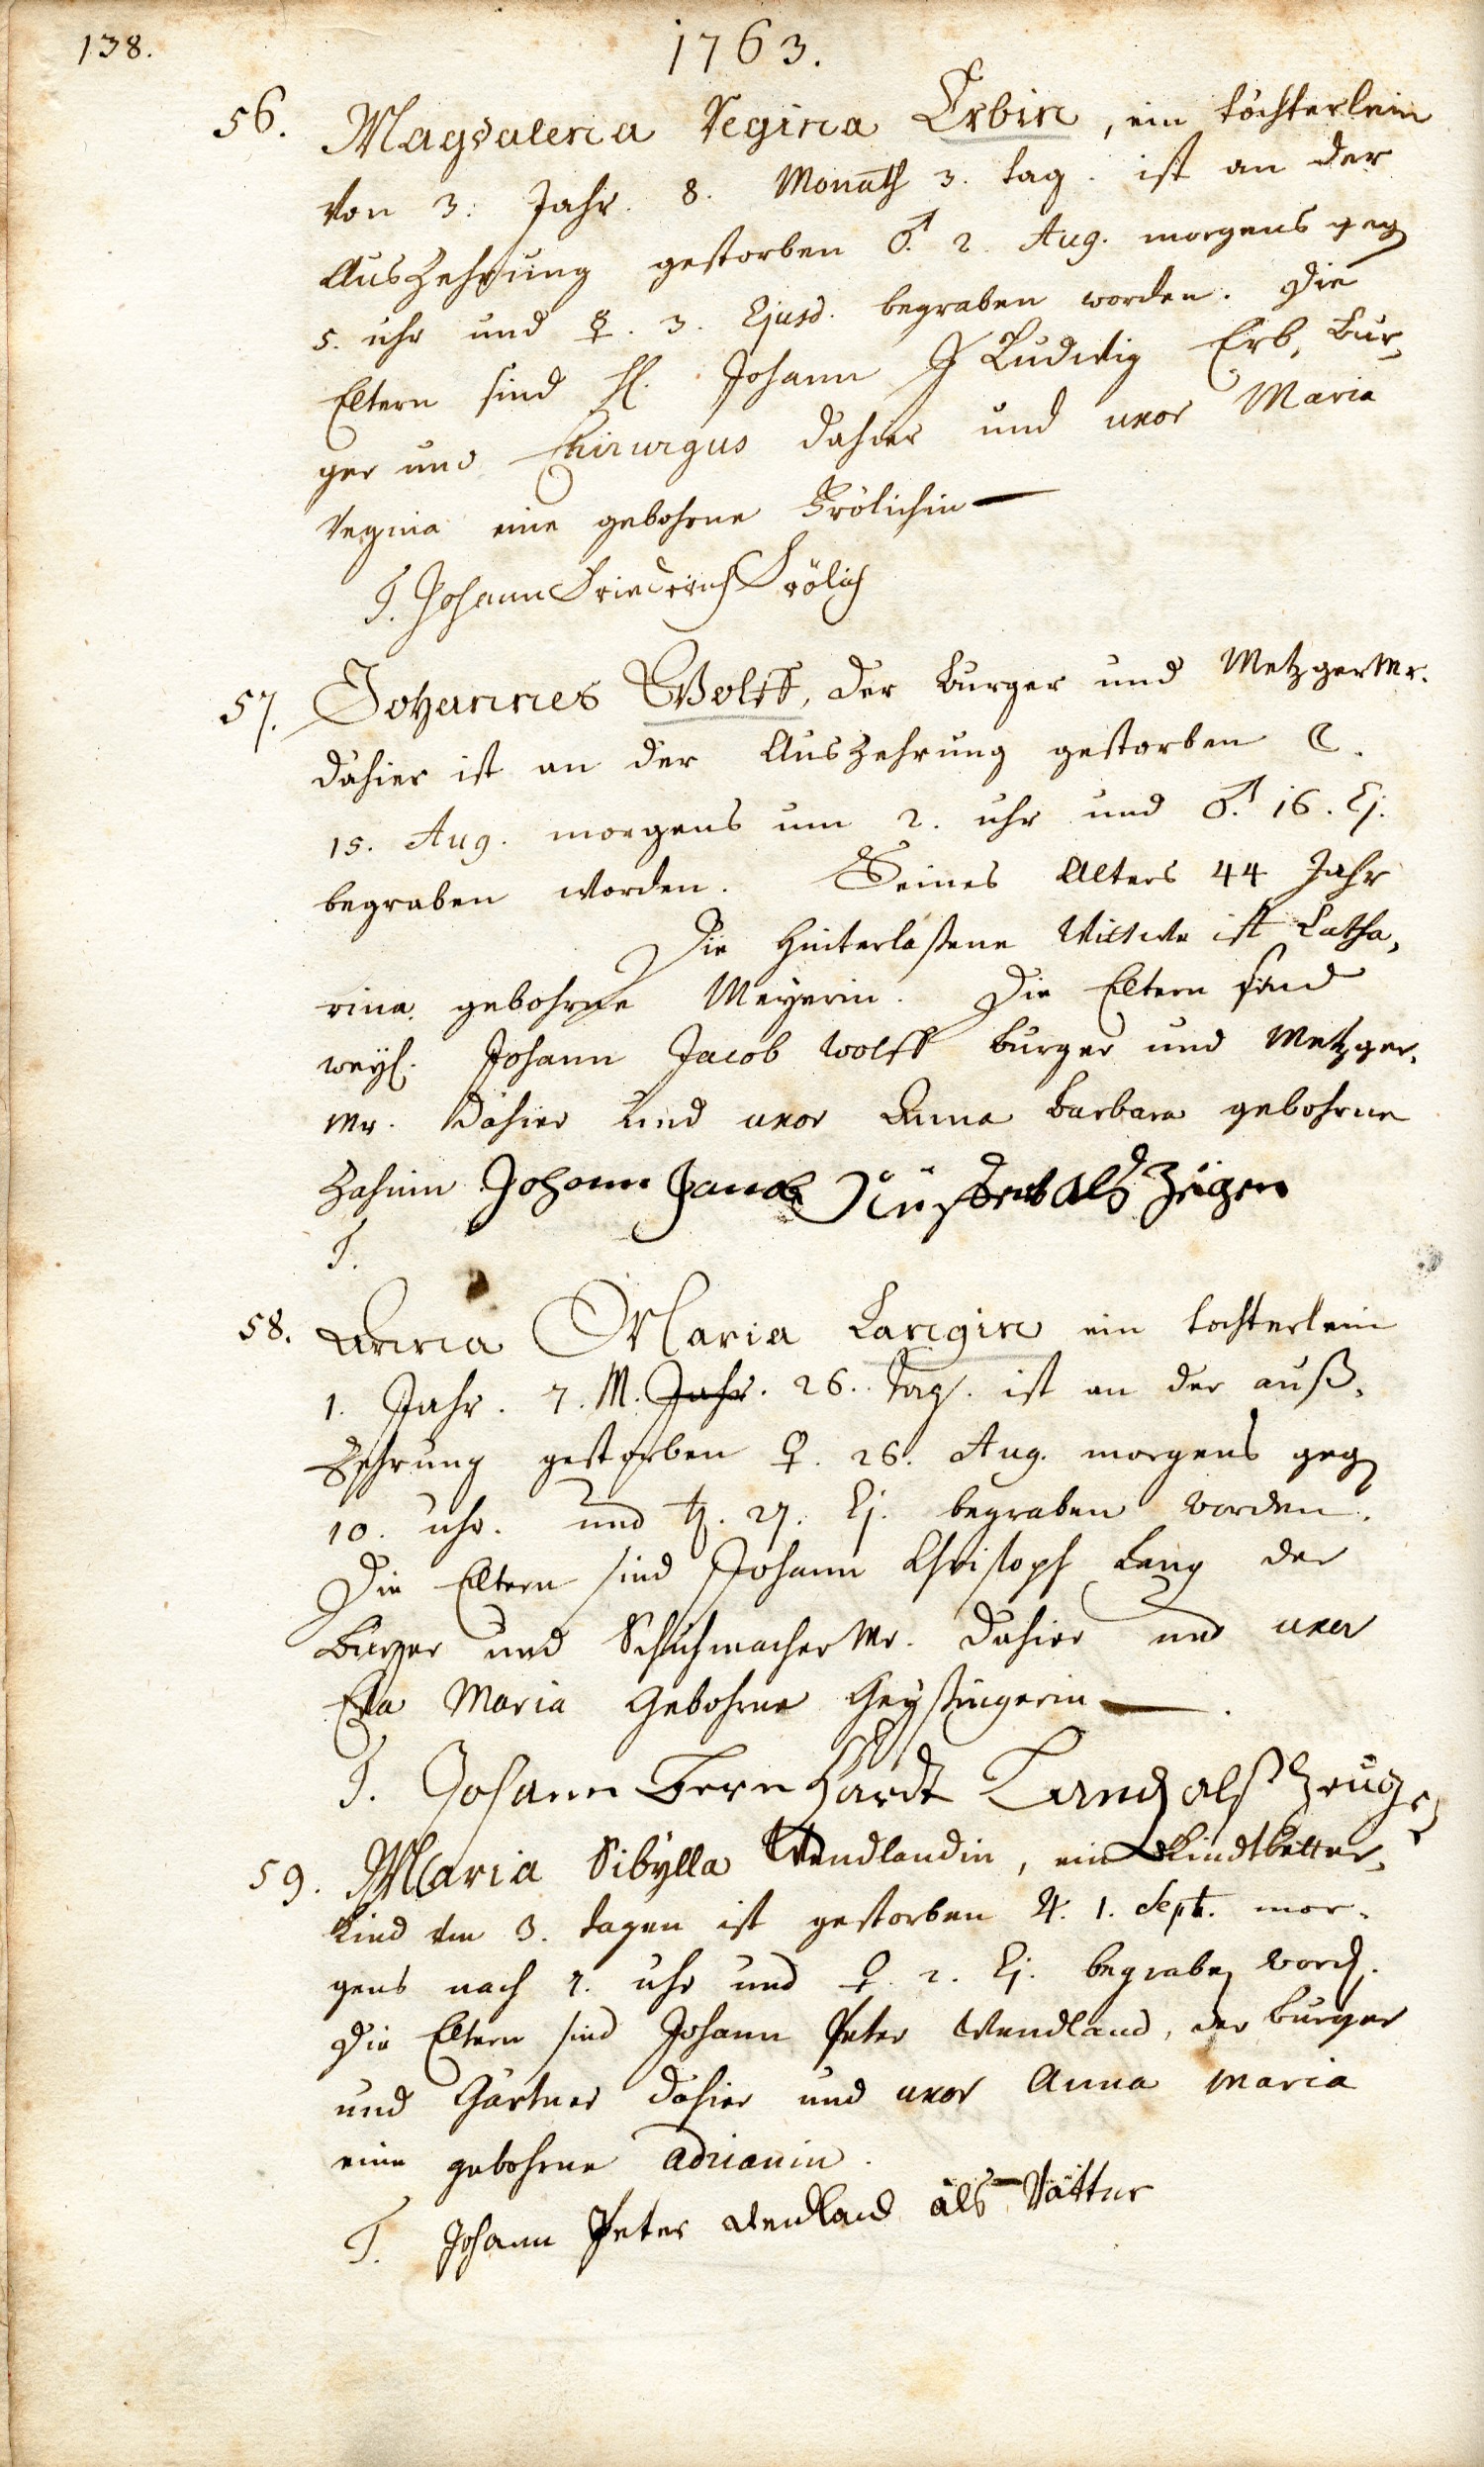 138.
1763.
56. Magdalena Regina Erbin, ein töchterlein
von 3. Jahr. 8. Monath 3. tag. ist an der
Auszehrung gestorben ♂. 2. Aug. morgens geg
5. uhr und ☿. 3. Ejusd. begraben worden. Die
Eltern sind H. Johann Ludwig Erb, Bur-
ger und Chirurgus dahier und uxor Maria
Regina eine gebohrne Frölichin
T. Johann Friederich Frölich
57. Johannes Wolff, der Burger und MetzgerMr.
dahier ist an der Auszehrung gestorben ☾.
15. Aug. morgens um 2. uhr und ♂. 16. Ej.
begraben worden. Seines Alters 44 Jahr
Die hinterlaßene Wittwe ist Catha-
rina gebohrne Meyerin. Die Eltern sind
weyl. Johann Jacob Wolff Burger und Metzger-
Mr. dahier und uxor Anna Barbara gebohrne
Hahnin Johann Jacob als Zeigen
T.
58. Anna Maria Langin ein tochterlein
1. Jahr. 7. M. Jahr. 26. Tag. ist an der auß-
Zehrung gestorben ♀. 26. Aug. morgens geg
10. uhr. und ♄. 27. Ej. begraben worden.
Die Eltern sind Johann Christoph Lang der
Burger und SchuhmacherMr. dahier und uxor
Eva Maria Gebohrne Geyßingerin
T. Johann Bernhardt Lang alß Zeug
59. Maria Sibylla Wendlandin, ein Kindtbetter-
Kind von 3. tagen ist gestorben ♃. 1. Sept. mor-
gens nach 7. uhr und ♀. 2. Ej. begraben word.
Die Eltern sind Johann Peter Wendland, der burger
und Gärtner dahier und uxor Anna Maria
eine gebohrne Adrianin.
T. Johann Peter Wendland als Vatter